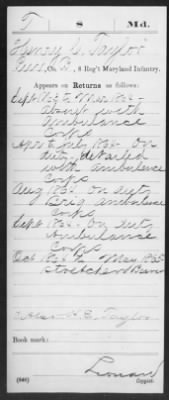 T 8 Md.
Henry S. Taylor
Pvt., Co. B, 8 Reg't Maryland Infantry.
Appears on Returns as follows:
Sept 186 to Mar 186 -
absent with
Ambulance
Corps
Apr & July 186 - On
duty, detailed
with ambulance
Corps
Aug 186 - On duty
Brig. ambulance
Corps
Sept 186 - On duty
Ambulance
Corps
Oct 186 to Mar 1865
Stretcher Bearer
H. S. Taylor
Book mark:
Leonard
(546) Copyist.